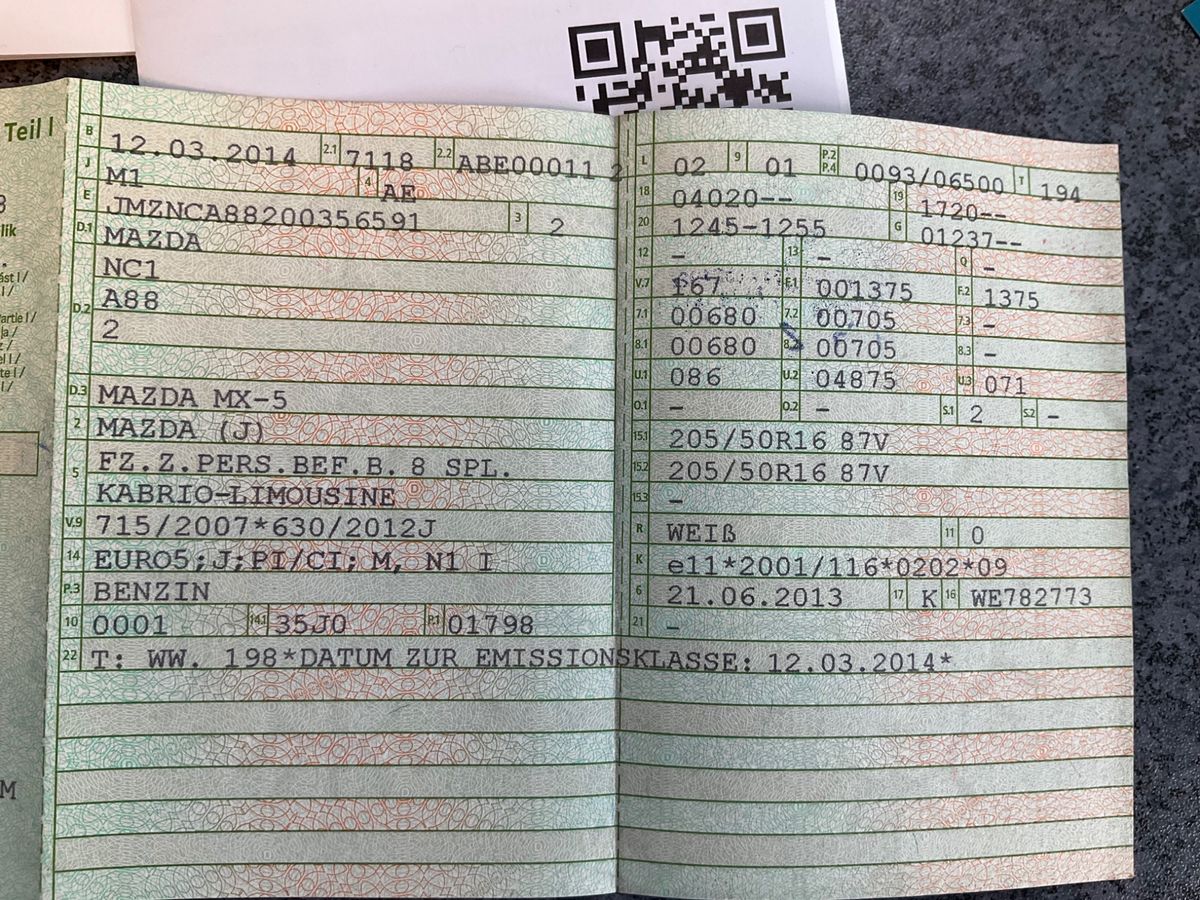 Teil I
B 12.03.2014 2.1 7118 2.2 ABE00011 2
J M1 4 AE
E JMZNCA88200356591 3 2
D.1 MAZDA
D.2 NC1
A88
2
D.3 MAZDA MX-5
2 MAZDA (J)
5 FZ.Z.PERS.BEF.B. 8 SPL.
KABRIO-LIMOUSINE
V.9 715/2007*630/2012J
14 EURO5;J;PI/CI; M, N1 I
P.3 BENZIN
10 0001 14.1 35J0 P.1 01798
L 02 9 01 P.2 P.4 0093/06500 T 194
18 04020-- 19 1720--
20 1245-1255 G 01237--
12 - 13 - Q -
V.7 167 F.1 001375 F.2 1375
7.1 00680 7.2 00705 7.3 -
8.1 00680 8.2 00705 8.3 -
U.1 086 U.2 04875 U.3 071
O.1 - O.2 - S.1 2 S.2 -
15.1 205/50R16 87V
15.2 205/50R16 87V
15.3 -
R WEIß 11 0
K e11*2001/116*0202*09
6 21.06.2013 17 K 16 WE782773
21 -
22 T: WW. 198*DATUM ZUR EMISSIONSKLASSE: 12.03.2014*
M